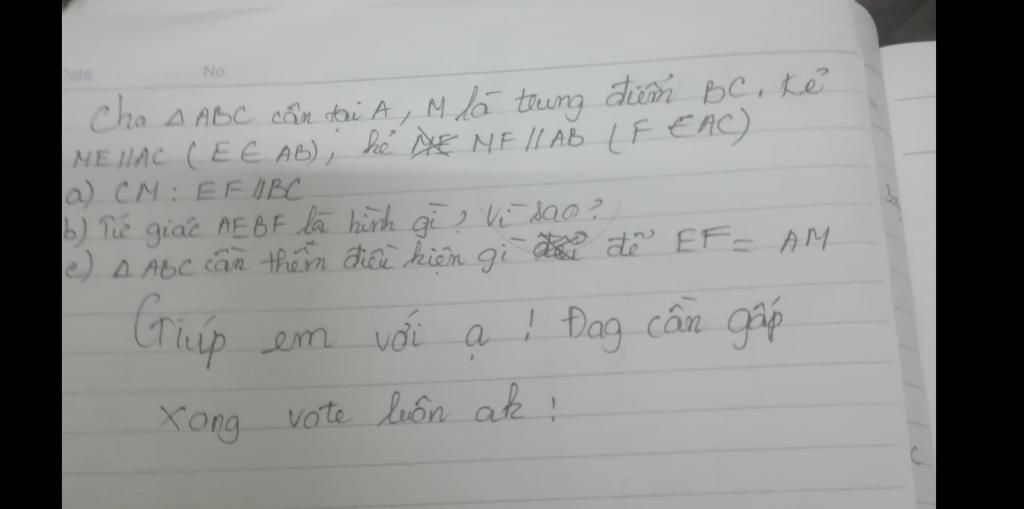 Date No.
Cho △ABC cân tại A, M là trung điểm BC. Kẻ
ME//AC (E∈AB), kẻ MF//AB (F∈AC)
a) CM: EF//BC
b) Tứ giác AEBF là hình gì, vì sao?
c) △ABC cần thêm điều kiện gì để EF = AM
Giúp em với ạ! Đag cần gấp
Xong vote luôn ak!